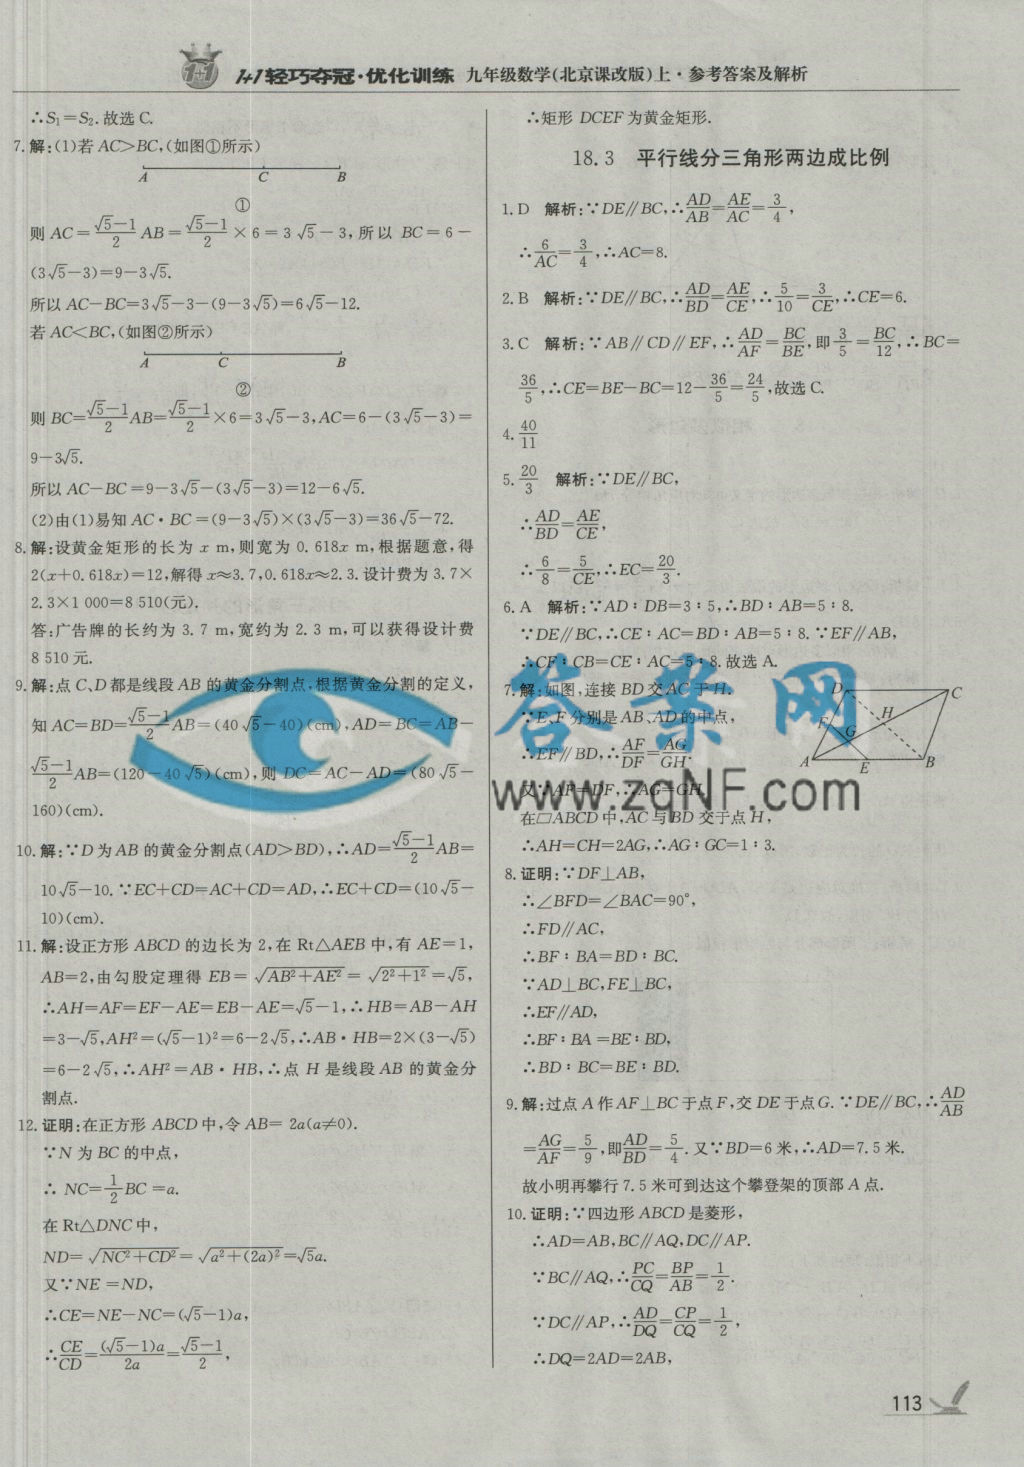 1+1轻巧夺冠·优化训练 九年级数学(北京课改版)上·参考答案及解析
∴S₁=S₂.故选C.
7.解:(1)若 AC>BC,(如图①所示)
A C B
①
则 AC=(√5-1)/2 AB=(√5-1)/2×6=3√5-3,所以 BC=6-
(3√5-3)=9-3√5.
所以 AC-BC=3√5-3-(9-3√5)=6√5-12.
若 AC<BC,(如图②所示)
A C B
②
则 BC=(√5-1)/2 AB=(√5-1)/2×6=3√5-3,AC=6-(3√5-3)=
9-3√5.
所以 AC-BC=9-3√5-(3√5-3)=12-6√5.
(2)由(1)易知 AC·BC=(9-3√5)×(3√5-3)=36√5-72.
8.解:设黄金矩形的长为 x m,则宽为 0.618x m,根据题意,得
2(x+0.618x)=12,解得 x≈3.7,0.618x≈2.3.设计费为 3.7×
2.3×1 000=8 510(元).
答:广告牌的长约为 3.7 m,宽约为 2.3 m,可以获得设计费
8 510元.
9.解:点 C、D 都是线段 AB 的黄金分割点,根据黄金分割的定义,
知 AC=BD=(√5-1)/2 AB=(40√5-40)(cm),AD=BC=AB-
(√5-1)/2 AB=(120-40√5)(cm),则 DC=AC-AD=(80√5-
160)(cm).
10.解:∵D 为 AB 的黄金分割点(AD>BD),∴AD=(√5-1)/2 AB=
10√5-10.∵EC+CD=AC+CD=AD,∴EC+CD=(10√5-
10)(cm).
11.解:设正方形 ABCD 的边长为 2,在 Rt△AEB 中,有 AE=1,
AB=2,由勾股定理得 EB=√(AB²+AE²)=√(2²+1²)=√5,
∴AH=AF=EF-AE=EB-AE=√5-1,∴HB=AB-AH
=3-√5,AH²=(√5-1)²=6-2√5,∴AB·HB=2×(3-√5)
=6-2√5,∴AH²=AB·HB,∴点 H 是线段 AB 的黄金分
割点.
12.证明:在正方形 ABCD 中,令 AB=2a(a≠0).
∵N 为 BC 的中点,
∴ NC=1/2 BC=a.
在 Rt△DNC 中,
ND=√(NC²+CD²)=√(a²+(2a)²)=√5a.
又∵NE=ND,
∴CE=NE-NC=(√5-1)a,
∴CE/CD=(√5-1)a/2a=(√5-1)/2,
∴矩形 DCEF 为黄金矩形.
18.3 平行线分三角形两边成比例
1.D 解析:∵DE∥BC,∴AD/AB=AE/AC=3/4,
∴6/AC=3/4,∴AC=8.
2.B 解析:∵DE∥BC,∴AD/BD=AE/CE,∴5/10=3/CE,∴CE=6.
3.C 解析:∵AB∥CD∥EF,∴AD/AF=BC/BE,即3/5=BC/12,∴BC=
36/5,∴CE=BE-BC=12-36/5=24/5,故选C.
4.40/11
5.20/3 解析:∵DE∥BC,
∴AD/BD=AE/CE,
∴6/8=5/CE,∴EC=20/3.
6.A 解析:∵AD∶DB=3∶5,∴BD∶AB=5∶8.
∵DE∥BC,∴CE∶AC=BD∶AB=5∶8.∵EF∥AB,
∴CF∶CB=CE∶AC=5∶8.故选A.
7.解:如图,连接 BD 交 AC 于 H.
∵E、F 分别是 AB、AD 的中点,
∴EF∥BD,∴AF/DF=AG/GH.
又∵AF=DF,∴AG=GH.
在▱ABCD 中,AC 与 BD 交于点 H,
∴AH=CH=2AG,∴AG∶GC=1∶3.
D C
H
F
G
A E B
8.证明:∵DF⊥AB,
∴∠BFD=∠BAC=90°,
∴FD∥AC,
∴BF∶BA=BD∶BC.
∵AD⊥BC,FE⊥BC,
∴EF∥AD,
∴BF∶BA=BE∶BD,
∴BD∶BC=BE∶BD.
9.解:过点 A 作 AF⊥BC 于点 F,交 DE 于点 G.∵DE∥BC,∴AD/AB
=AG/AF=5/9,即AD/BD=5/4.又∵BD=6 米,∴AD=7.5 米.
故小明再攀行 7.5 米可到达这个攀登架的顶部 A 点.
10.证明:∵四边形 ABCD 是菱形,
∴AD=AB,BC∥AQ,DC∥AP.
∵BC∥AQ,∴PC/CQ=BP/AB=1/2.
∵DC∥AP,∴AD/DQ=CP/CQ=1/2,
∴DQ=2AD=2AB,
答案网
www.zqNF.com
113